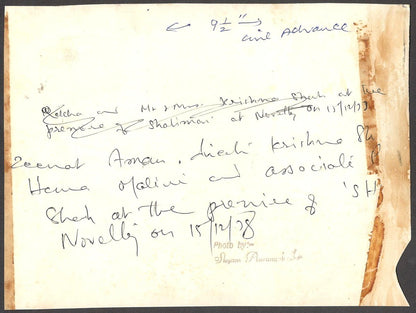 ← 9 1/2" →
Cine Advance
Rekha and Mr & Mrs. Krishna Shah at the
premiere of Shalimar at Novelty on 15/12/78
Zeenat Aman, Krishna Sh
Hema Malini and associate
Shah at the premiere of 'SH
Novelty on 15/12/78
Photo by :-